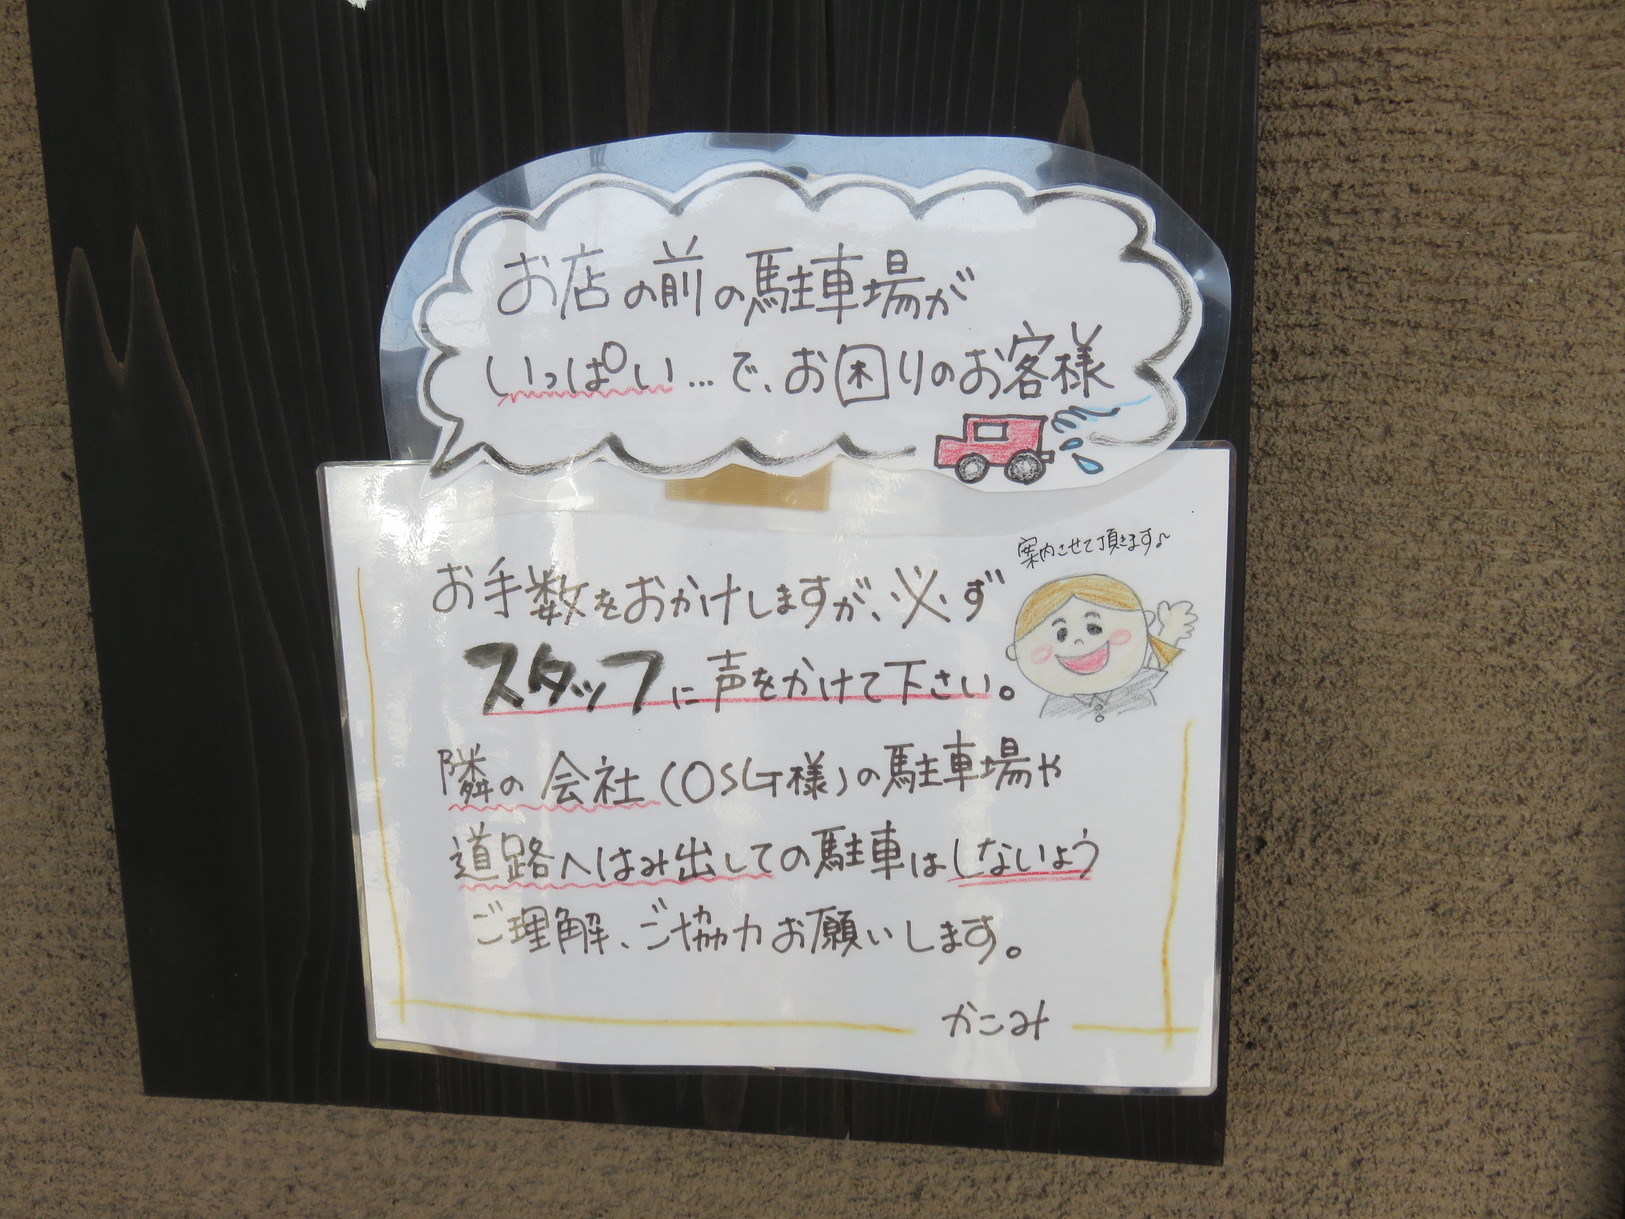 お店の前の駐車場が
いっぱい…で、お困りのお客様
案内させて頂きます♪
お手数をおかけしますが、必ず
スタッフに声をかけて下さい。
隣の会社(OSG様)の駐車場や
道路へはみ出しての駐車はしないよう
ご理解、ご協力お願いします。
かこみ